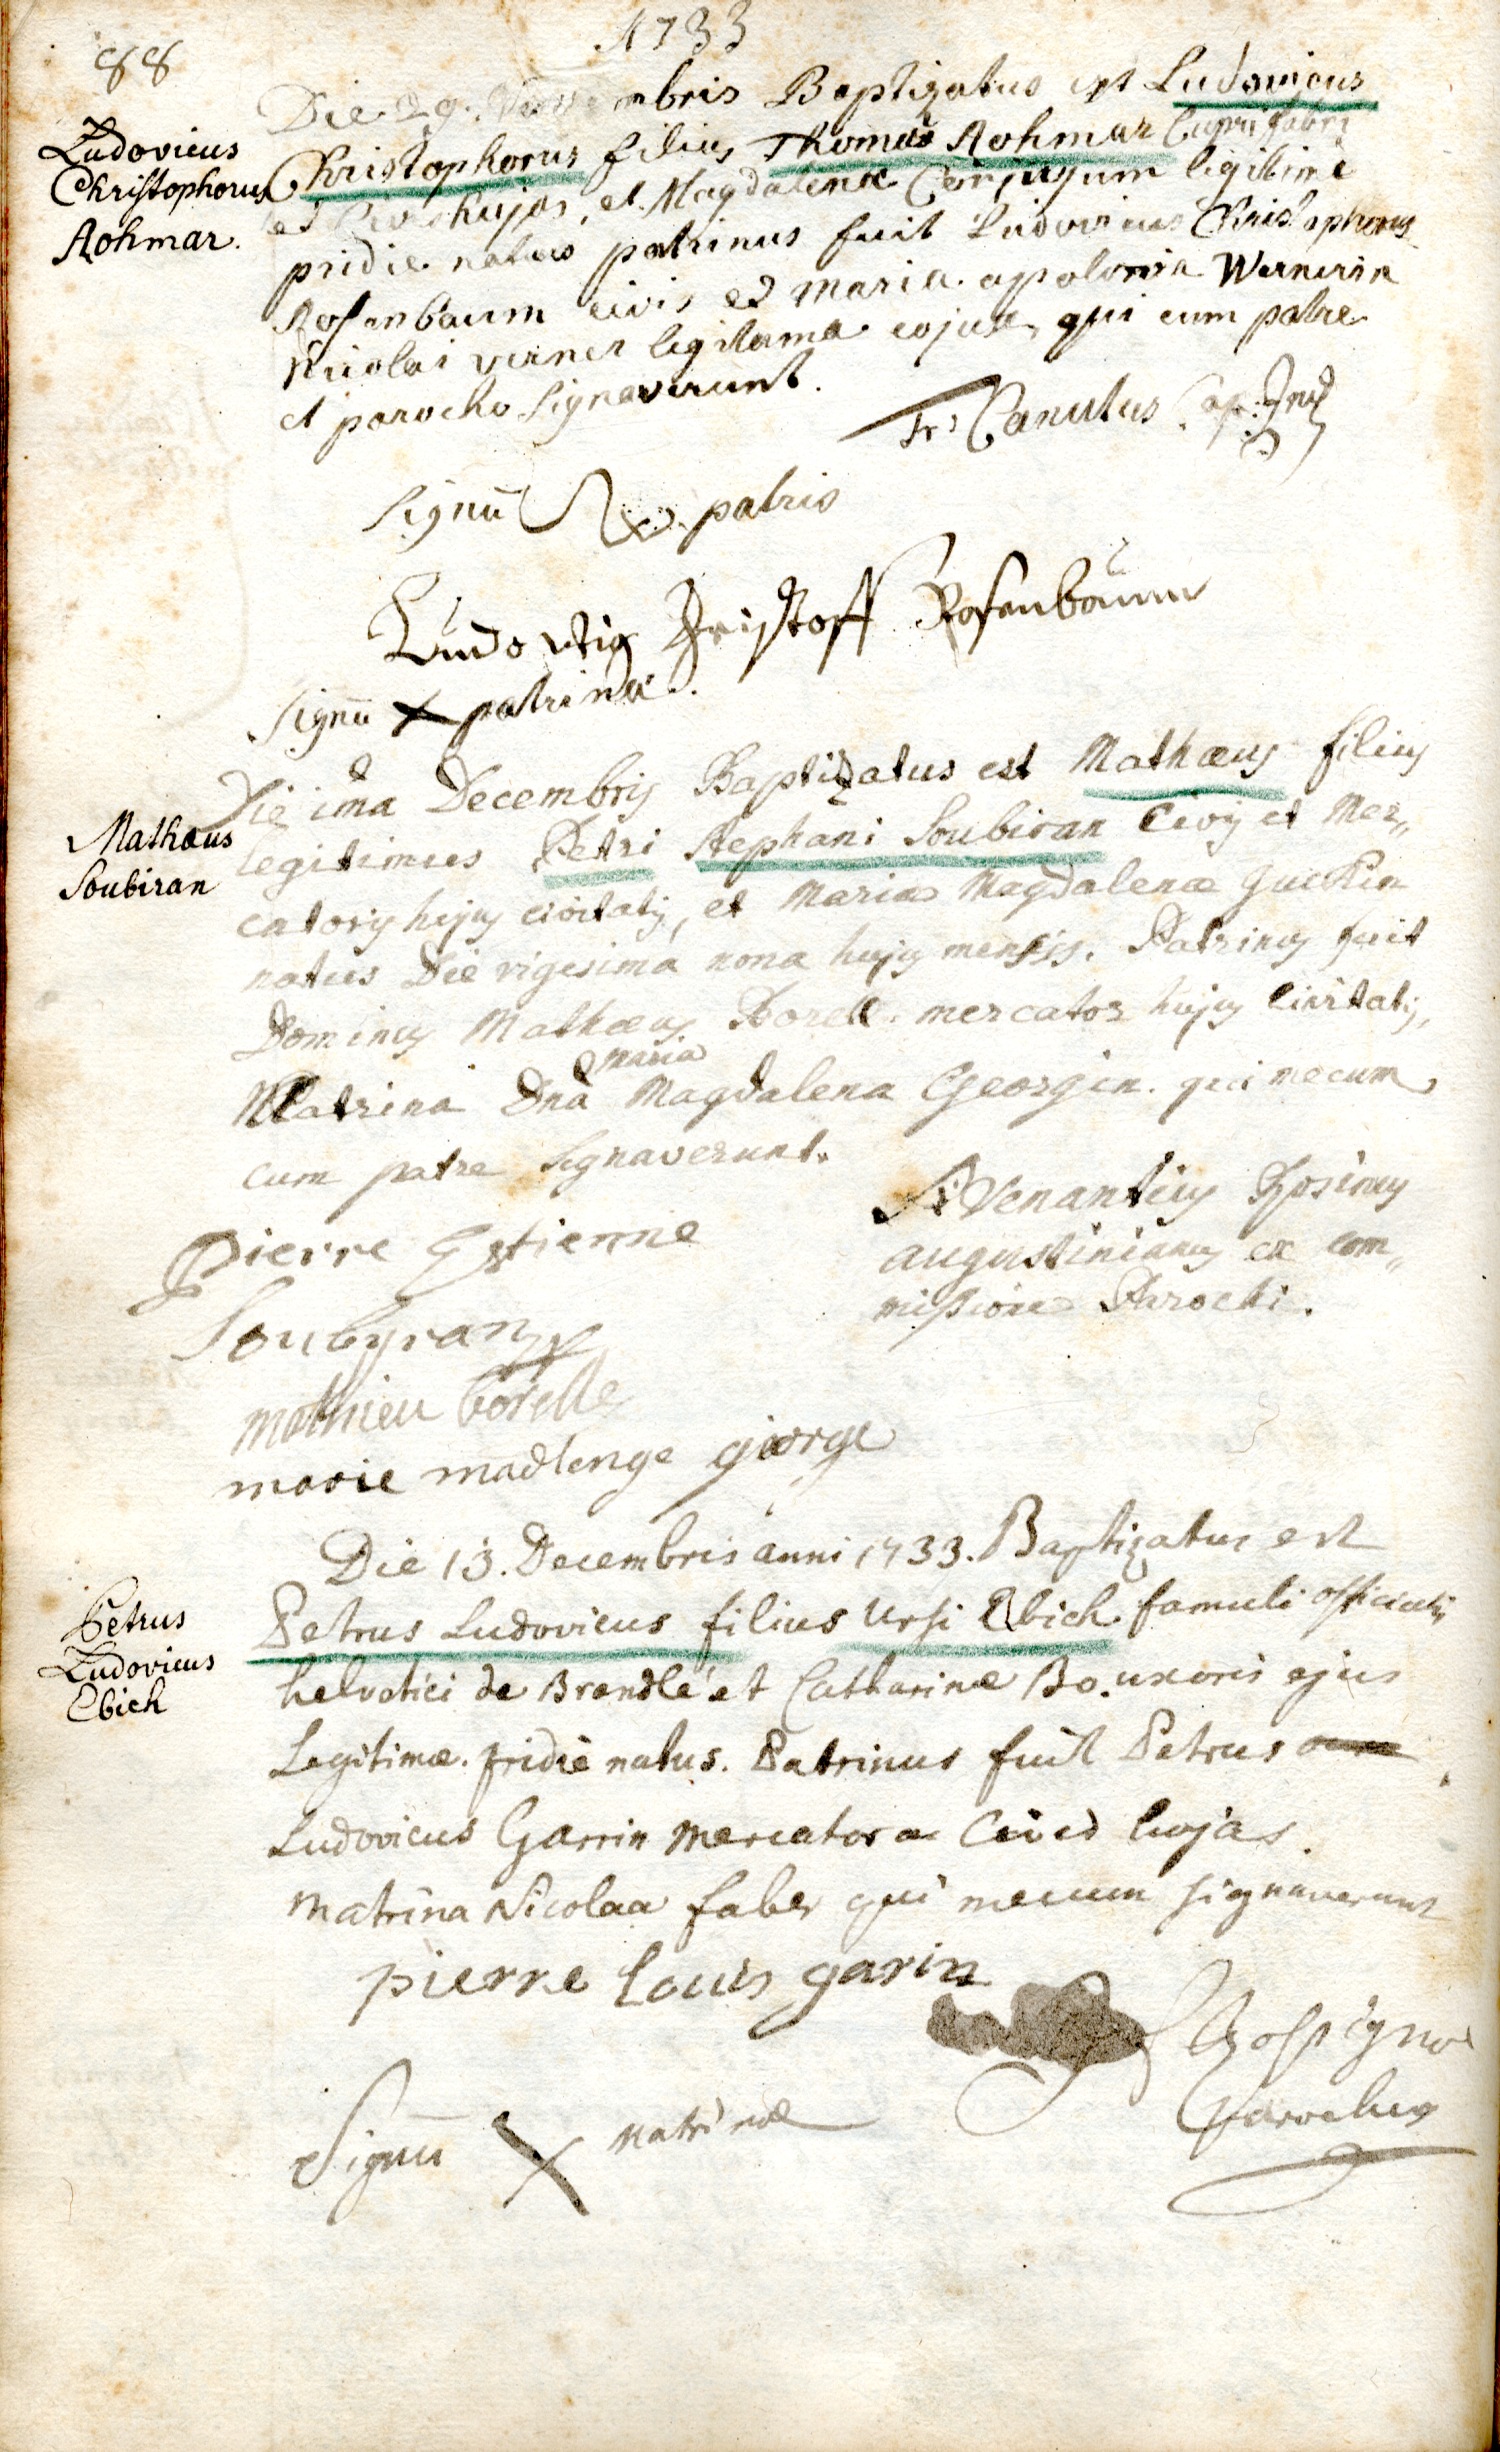 88
1733
Die 29. Novembris Baptizatus est Ludovicus
Ludovicus
Christophorus
Rohmar.
Christophorus filius Thomas Rohmar Cupri fabri
et Civis hujas, et Magdalenæ Conjugum legitime
pridie natus patrinus fuit Ludovicus Christophorus
Rosenbaum civis et maria apolonia Wernerin
Nicolai verner legitama cojux, qui cum patre
et parocho Signaverunt.
Fr: Canutus Cap:
Signū patris
Ludowig Christoff Rosenbaum
Signū X patrinæ.
Die ima Decembris Baptizatus est Mathæus filius
Mathæus
Soubiran
legitimus Petri Stephani Soubiran Civis et Mer„
catoris hujus civitatis, et Mariæ Magdalenæ
natus Die vigesima nona hujus mensis. Patrinus fuit
Dominus Mathæus Borell mercator hujus Civitatis,
Matrina Dna Maria Magdalena Georgin. qui mecum
cum patre signaverunt.
Fr Venantius
augustinianus ex com„
missione Parochi.
Pierre Estienne
Soubyran
Mathieu borelle
marie madlenge giorge
Die 13. Decembris anni 1733. Baptizatus est
Petrus
Ludovicus
Ebich
Petrus Ludovicus filius Ursi Ebich famuli officialis
helvetici de Brendlé et Catharinæ Bo. uxoris ejus
Legitimæ. pridie natus. Patrinus fuit Petrus
Ludovicus Garrin Mercator ac Civis hujas.
Matrina Nicolaa faber qui mecum signaverunt
pierre Louis garin
parochus
Signū X matrinæ